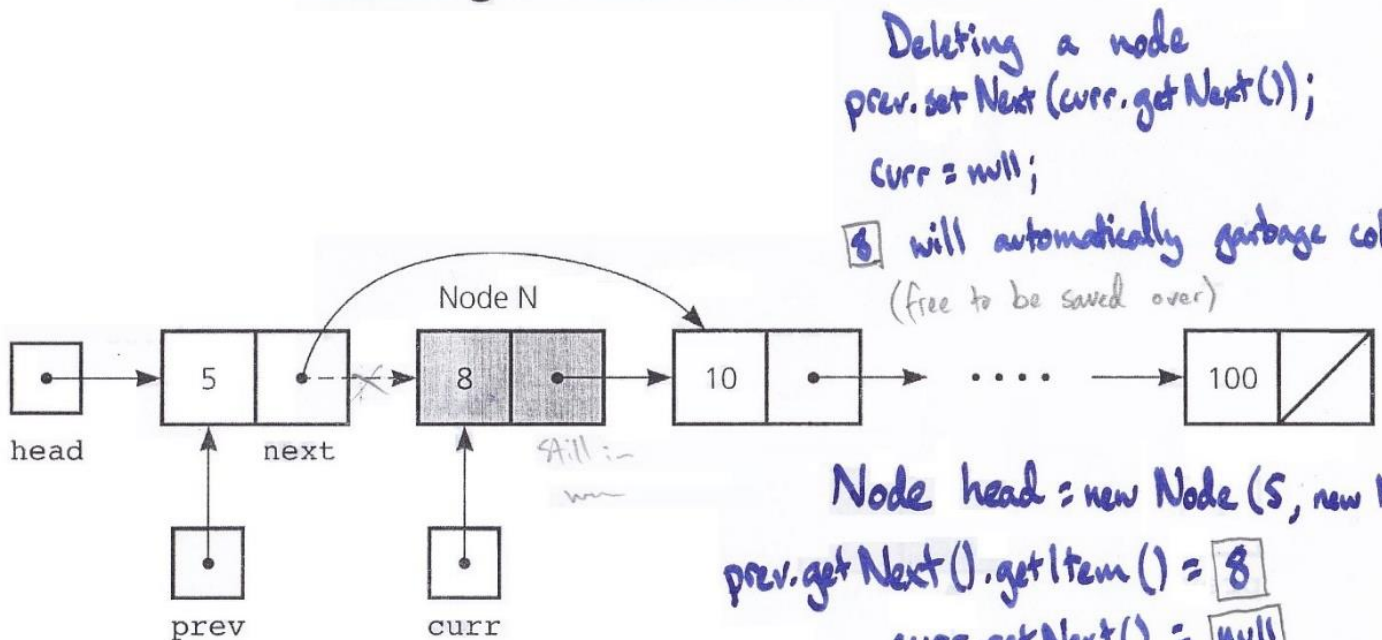 Deleting a node
prev.setNext(curr.getNext());
curr = null;
8 will automatically garbage col
(free to be saved over)
Node N
5 8 10 · · · · 100
head next
Still in
prev curr
Node head = new Node(5, new
prev.getNext().getItem() = 8
curr.getNext() = null